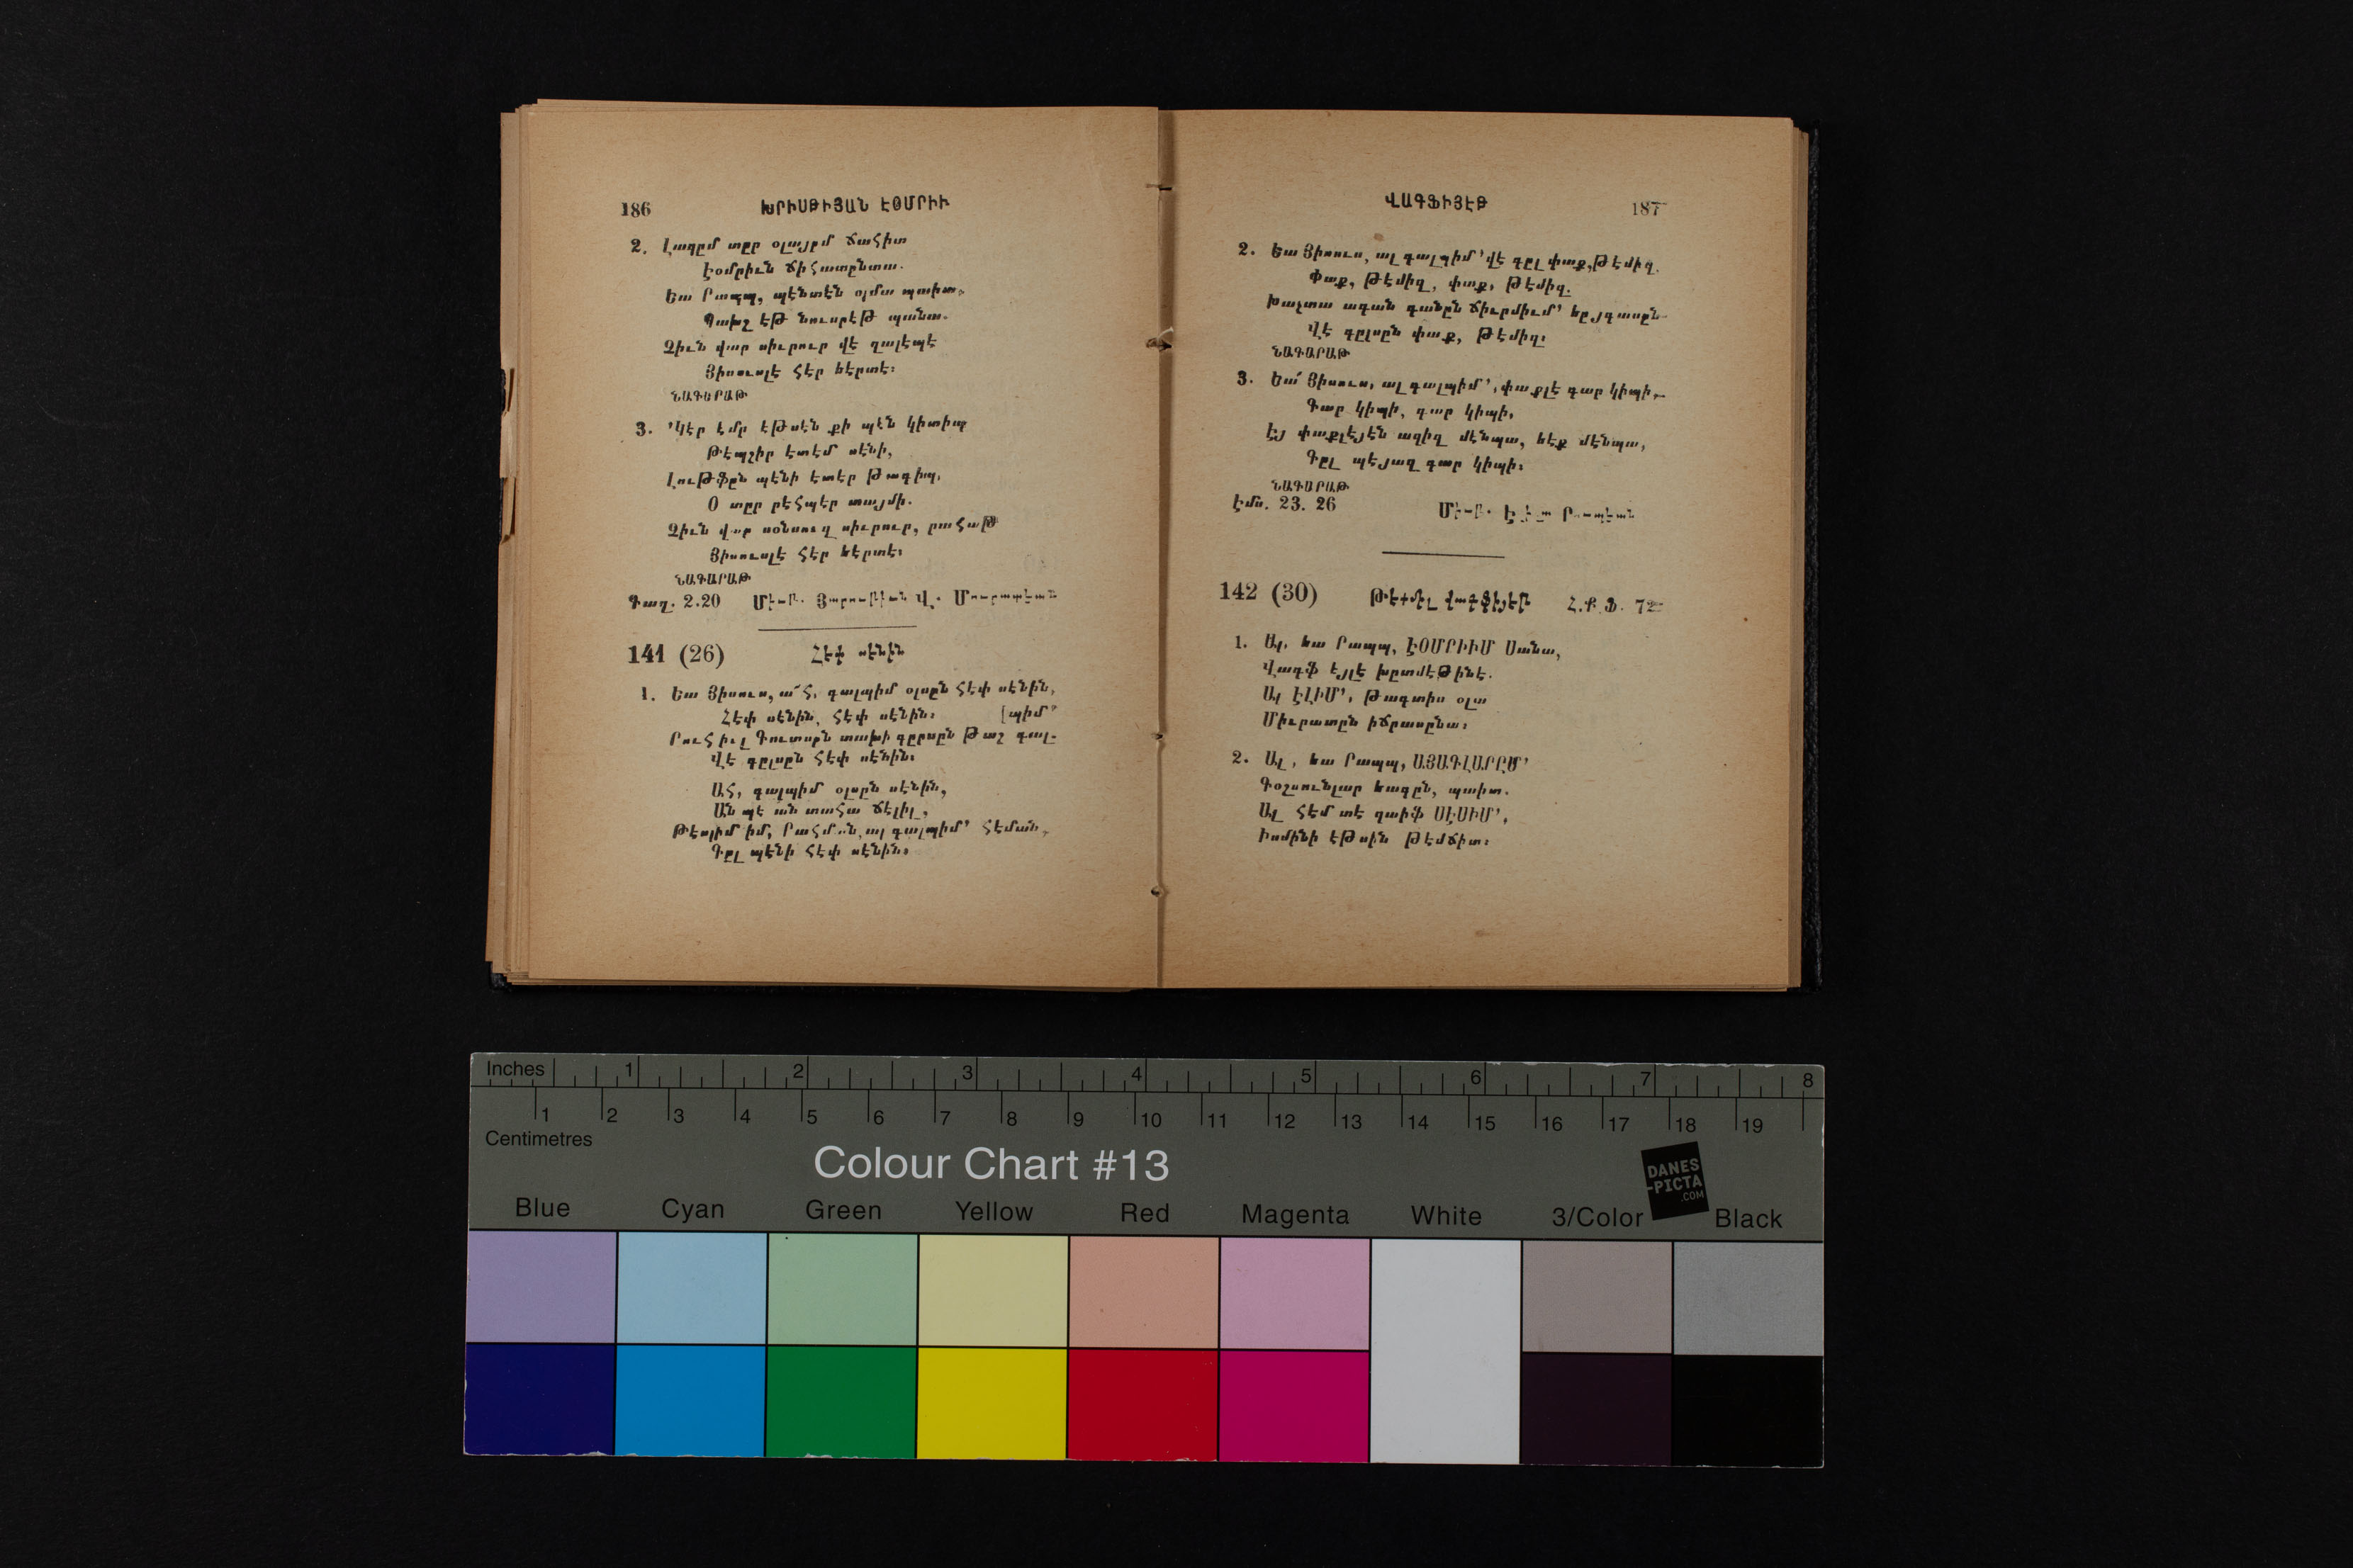 186 ԽՐԻՍԹԻՅԱՆ ԷՕՄՐԻՒ
2. Լազըմ տըր օլայըմ ճահիտ
Էօմրիւն ճիհատընտա.
Եա Րապպ, պէնտէն օլմա պաիտ,
Պախշ էթ նուսրէթ պանա.
Չիւն վար սիւրուր վէ ղալէպէ
Յիսուսլէ հէր եէրտէ։
ՆԱԳԱՐԱԹ
3. ՚Կէր էմր էթսէն քի պէն կիտիպ
Թէպշիր էտէմ սէնի,
Լութֆըն պէնի էտէր թագիպ,
Օ տըր րէհպէր տայմի.
Չիւն վար սօնսուզ սիւրուր, րահաթ
Յիսուսլէ հէր եէրտէ։
ՆԱԳԱՐԱԹ
Գաղ. 2.20
141 (26) Հէփ սէնին
1. Եա Յիսուս, ա՜հ, գալպիմ օլսըն հէփ սէնին,
Հէփ սէնին, հէփ սէնին։ [պիմ՚
Րուհիւլ Գուտսըն տախի գըրսըն թաշ գալ-
Վէ գըլսըն հէփ սէնին։
ԱՀ, գալպիմ օլսըն սէնին,
Ան պէ ան տահա ճէլիլ,
Թէսլիմ իմ, Րահման, ալ գալպիմ՚ հէման,
Գըլ պէնի հէփ սէնին։
ՎԱԳՖԻՅԷԹ 187
2. Եա Յիսուս, ալ գալպիմ՚ վէ գըլ փաք, թէմիզ.
Փաք, թէմիզ, փաք, թէմիզ.
Խաչտա ագան գանըն ճիւրմիւմ՚ եըյգասըն
Վէ գըլսըն փաք, թէմիզ։
ՆԱԳԱՐԱԹ
3. Եա՜ Յիսուս, ալ գալպիմ՚, փաքլէ գար կիպի,
Գար կիպի, գար կիպի,
Էյ փաքլէյէն ազիզ մէնպա, եէք մէնպա,
Գըլ պէյազ գար կիպի։
ՆԱԳԱՐԱԹ
Էմս. 23. 26
142 (30) Թէքմիլ վագֆիյէթ Հ.Ք.Ֆ. 72
1. Ալ, եա Րապպ, ԷՕՄՐԻՒՄ Սանա,
Վագֆ էյլէ խըտմէթինէ.
Ալ ԷԼԻՄ՚, թագտիս օլա
Միւրատըն իճրասընա։
2. Ալ, եա Րապպ, ԱՅԱԳԼԱՐԸՄ՚
Գօշսունլար եագըն, պաիտ.
Ալ հէմ տէ զաիֆ ՍԷՍԻՄ՚,
Իսմինի էթսին թէմճիտ։
Inches 1 2 3 4 5 6 7 8
1 2 3 4 5 6 7 8 9 10 11 12 13 14 15 16 17 18 19
Centimetres
Colour Chart #13
DANES
-PICTA
.COM
Blue Cyan Green Yellow Red Magenta White 3/Color Black